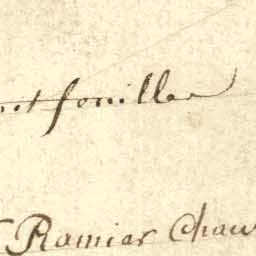 fouiller
Ramier Chau